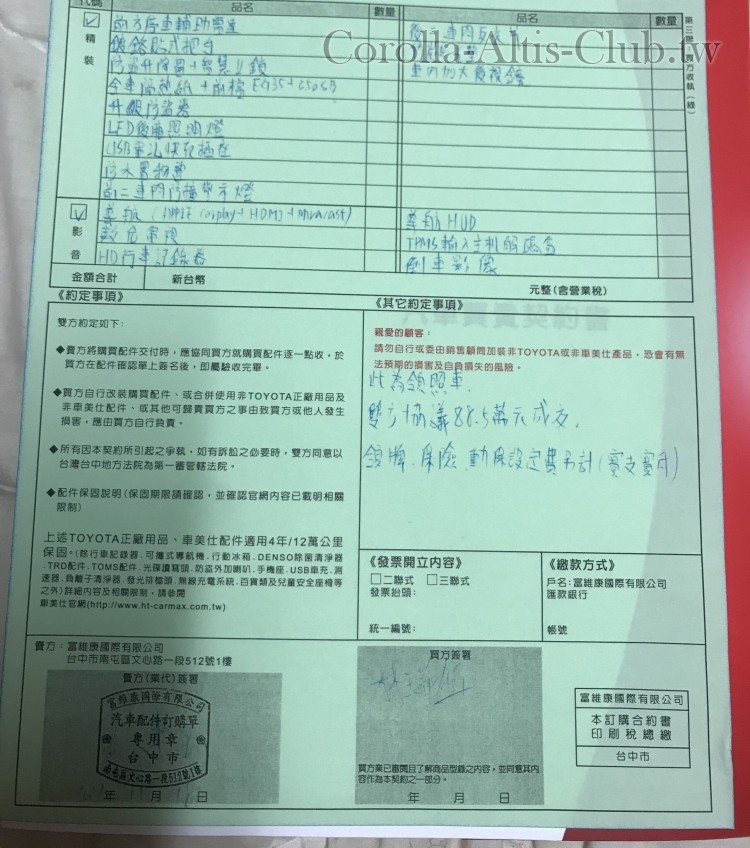 代碼 品名 數量 品名 數量
Corolla-Altis-Club.tw
精裝
前方停車輔助雷達
鍍鉻貼式把手
車內加大廣視鏡
升級防盜器
LED後廂照明燈
USB
防水置物墊
影音
導航 (APPLE carplay+HDMI+Miracast)
導航HUD
數位電視
TPMS輸入主機解碼器
HD行車記錄器
倒車影像
金額合計 新台幣 元整(含營業稅)
《約定事項》
雙方約定如下:
◆賣方將購買配件交付時,應協同買方就購買配件逐一點收,於
買方在配件確認單上簽名後,即屬驗收完畢。
◆買方自行改裝購買配件、或合併使用非TOYOTA正廠用品及
非車美仕配件、或其他可歸責買方之事由致買方或他人發生
損害,應由買方自行負責。
◆所有因本契約所引起之爭執,如有訴訟之必要時,雙方同意以
台灣台中地方法院為第一審管轄法院。
◆配件保固說明(保固期限請確認,並確認官網內容已載明相關
限制)
上述TOYOTA正廠用品、車美仕配件適用4年/12萬公里
保固。(除行車記錄器.可攜式導航機.行動冰箱.DENSO除菌清淨器
.TRD配件.TOMS配件.光碟讀寫頭.防盜外加喇叭.手機座.USB車充.測
速器.負離子清淨器.發光排檔頭.無線充電系統.百貨類及兒童安全座椅等
之外)詳細內容及相關限制,請參閱
車美仕官網(http://www.ht-carmax.com.tw)
《其它約定事項》
親愛的顧客:
請勿自行或委由銷售顧問加裝非TOYOTA或非車美仕產品,恐會有無
法預期的損害及自負損失的風險。
此為領照車.
雙方協議88.5萬元成交.
領牌.保險.動保設定費另計(實支實付)
《發票開立內容》
□二聯式 □三聯式
發票抬頭:
統一編號:
《繳款方式》
戶名:富維康國際有限公司
匯款銀行
帳號
賣方:富維康國際有限公司
台中市南屯區文心路一段512號1樓
賣方(業代)簽署
富維康國際有限公司
汽車配件訂購單
專用章
台中市
南屯區文心路一段512號1樓
年 月 日
買方簽署
買方業已審閱且了解商品型錄之內容,並同意其內
容作為本契約之一部分。
年 月 日
富維康國際有限公司
本訂購合約書
印刷稅總繳
台中市